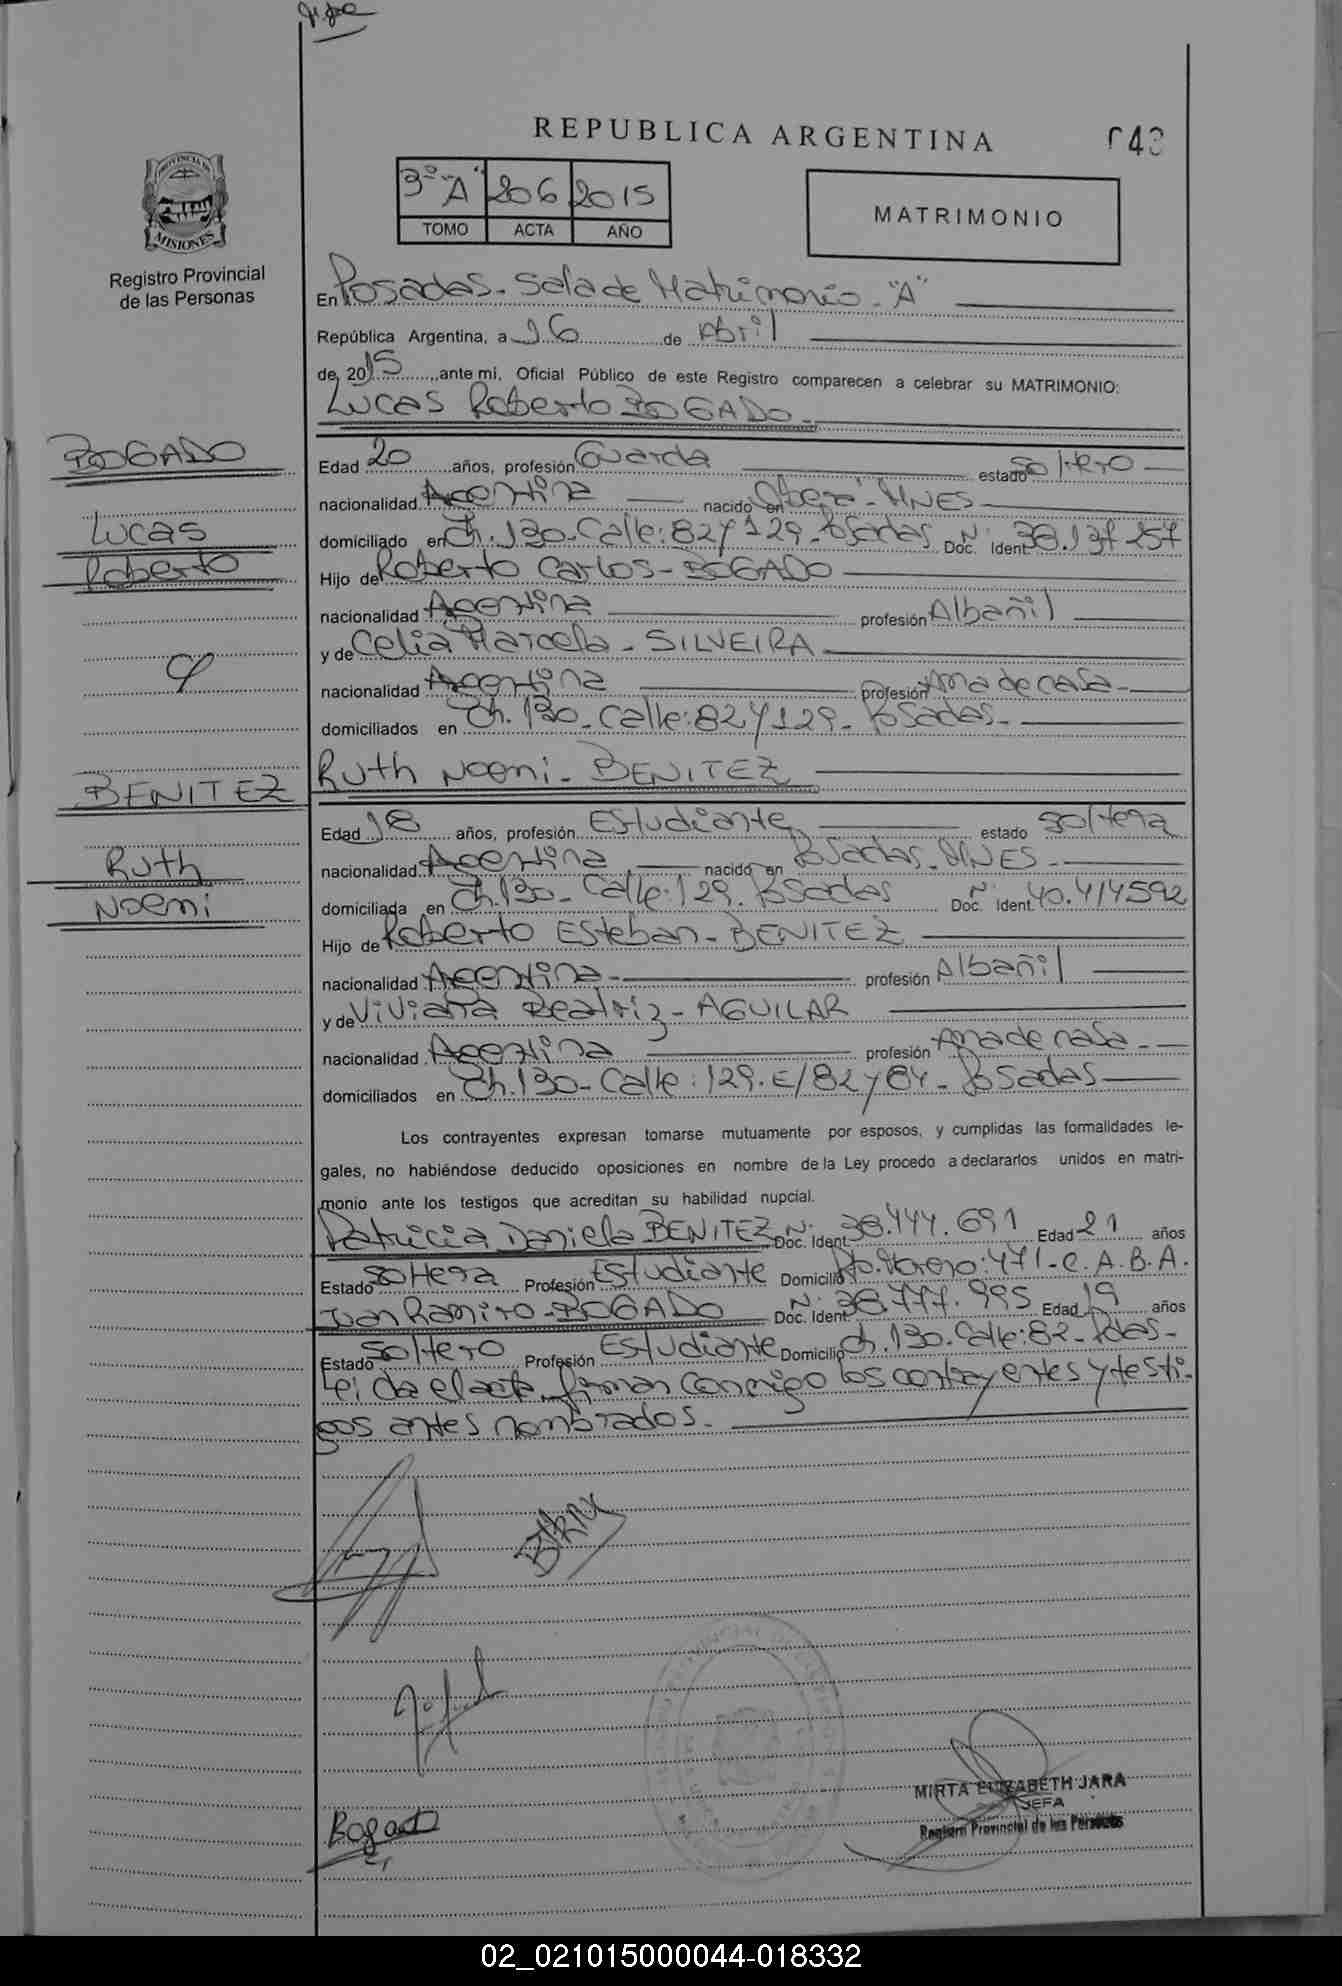 REPUBLICA ARGENTINA
043
3º "A" 206 2015
TOMO ACTA AÑO
MATRIMONIO
PROVINCIA DE
MISIONES
Registro Provincial
de las Personas
En Posadas - Sala de Matrimonio - "A"
República Argentina, a 16 de Abril
de 2015 ante mi, Oficial Público de este Registro comparecen a celebrar su MATRIMONIO:
Lucas Roberto BOGADO -
BOGADO
Lucas
Roberto
Edad 20 años, profesión Guarda estado soltero
nacionalidad Argentina nacido en Oberá - MNES
domiciliado en Ch. 130 - Calle: 82 y 129 - Posadas Doc. Nº Ident. 38.137 257
Hijo de Roberto Carlos - BOGADO
nacionalidad Argentina profesión Albañil
y de Celia Marcela - SILVEIRA
nacionalidad Argentina profesión Ama de casa -
domiciliados en Ch. 130 - Calle: 82 y 129 - Posadas -
y
BENITEZ
Ruth
Noemi
Ruth Noemi - BENITEZ
Edad 18 años, profesión Estudiante estado soltera
nacionalidad Argentina nacido en Posadas - MNES -
domiciliada en Ch. 130 - Calle: 129 - Posadas Doc. Nº Ident. 40.414592
Hijo de Roberto Esteban - BENITEZ
nacionalidad Argentina - profesión Albañil
y de Viviana Beatriz - AGUILAR
nacionalidad Argentina profesión Ama de casa -
domiciliados en Ch. 130 - Calle: 129 - E/82 y 84 - Posadas
Los contrayentes expresan tomarse mutuamente por esposos, y cumplidas las formalidades le-
gales, no habiéndose deducido oposiciones en nombre de la Ley procedo a declararlos unidos en matri-
monio ante los testigos que acreditan su habilidad nupcial.
Patricia Daniela BENITEZ Doc. Nº Ident. 38.444.691 Edad 21 años
Estado soltera Profesión Estudiante Domicilio Pto. Moreno: 471 - C.A.B.A.
Juan Ramiro - BOGADO Doc. Nº Ident. 38.777.995 Edad 19 años
Estado soltero Profesión Estudiante Domicilio Ch. 130 - Calle: 82 - Pdas -
Leída el acta, firman conmigo los contrayentes y testi-
gos antes nombrados. -
Bogado
MIRTA ELIZABETH JARA
JEFA
Registro Provincial de las Personas
02_021015000044-018332